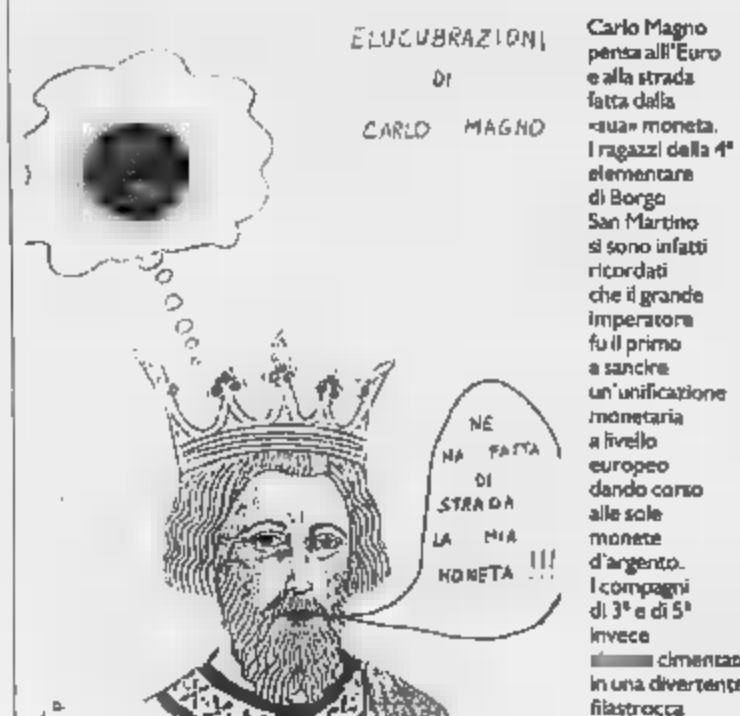 ELUCUBRAZIONI
DI
CARLO MAGNO
NE
HA FATTA
DI
STRADA
LA MIA
MONETA !!!
Carlo Magno
pensa all'Euro
e alla strada
fatta dalla
«sua» moneta.
I ragazzi della 4ª
elementare
di Borgo
San Martino
si sono infatti
ricordati
che il grande
imperatore
fu il primo
a sancire
un'unificazione
monetaria
a livello
europeo
dando corso
alle sole
monete
d'argento.
I compagni
di 3ª e di 5ª
invece
cimentati
in una divertente
filastrocca